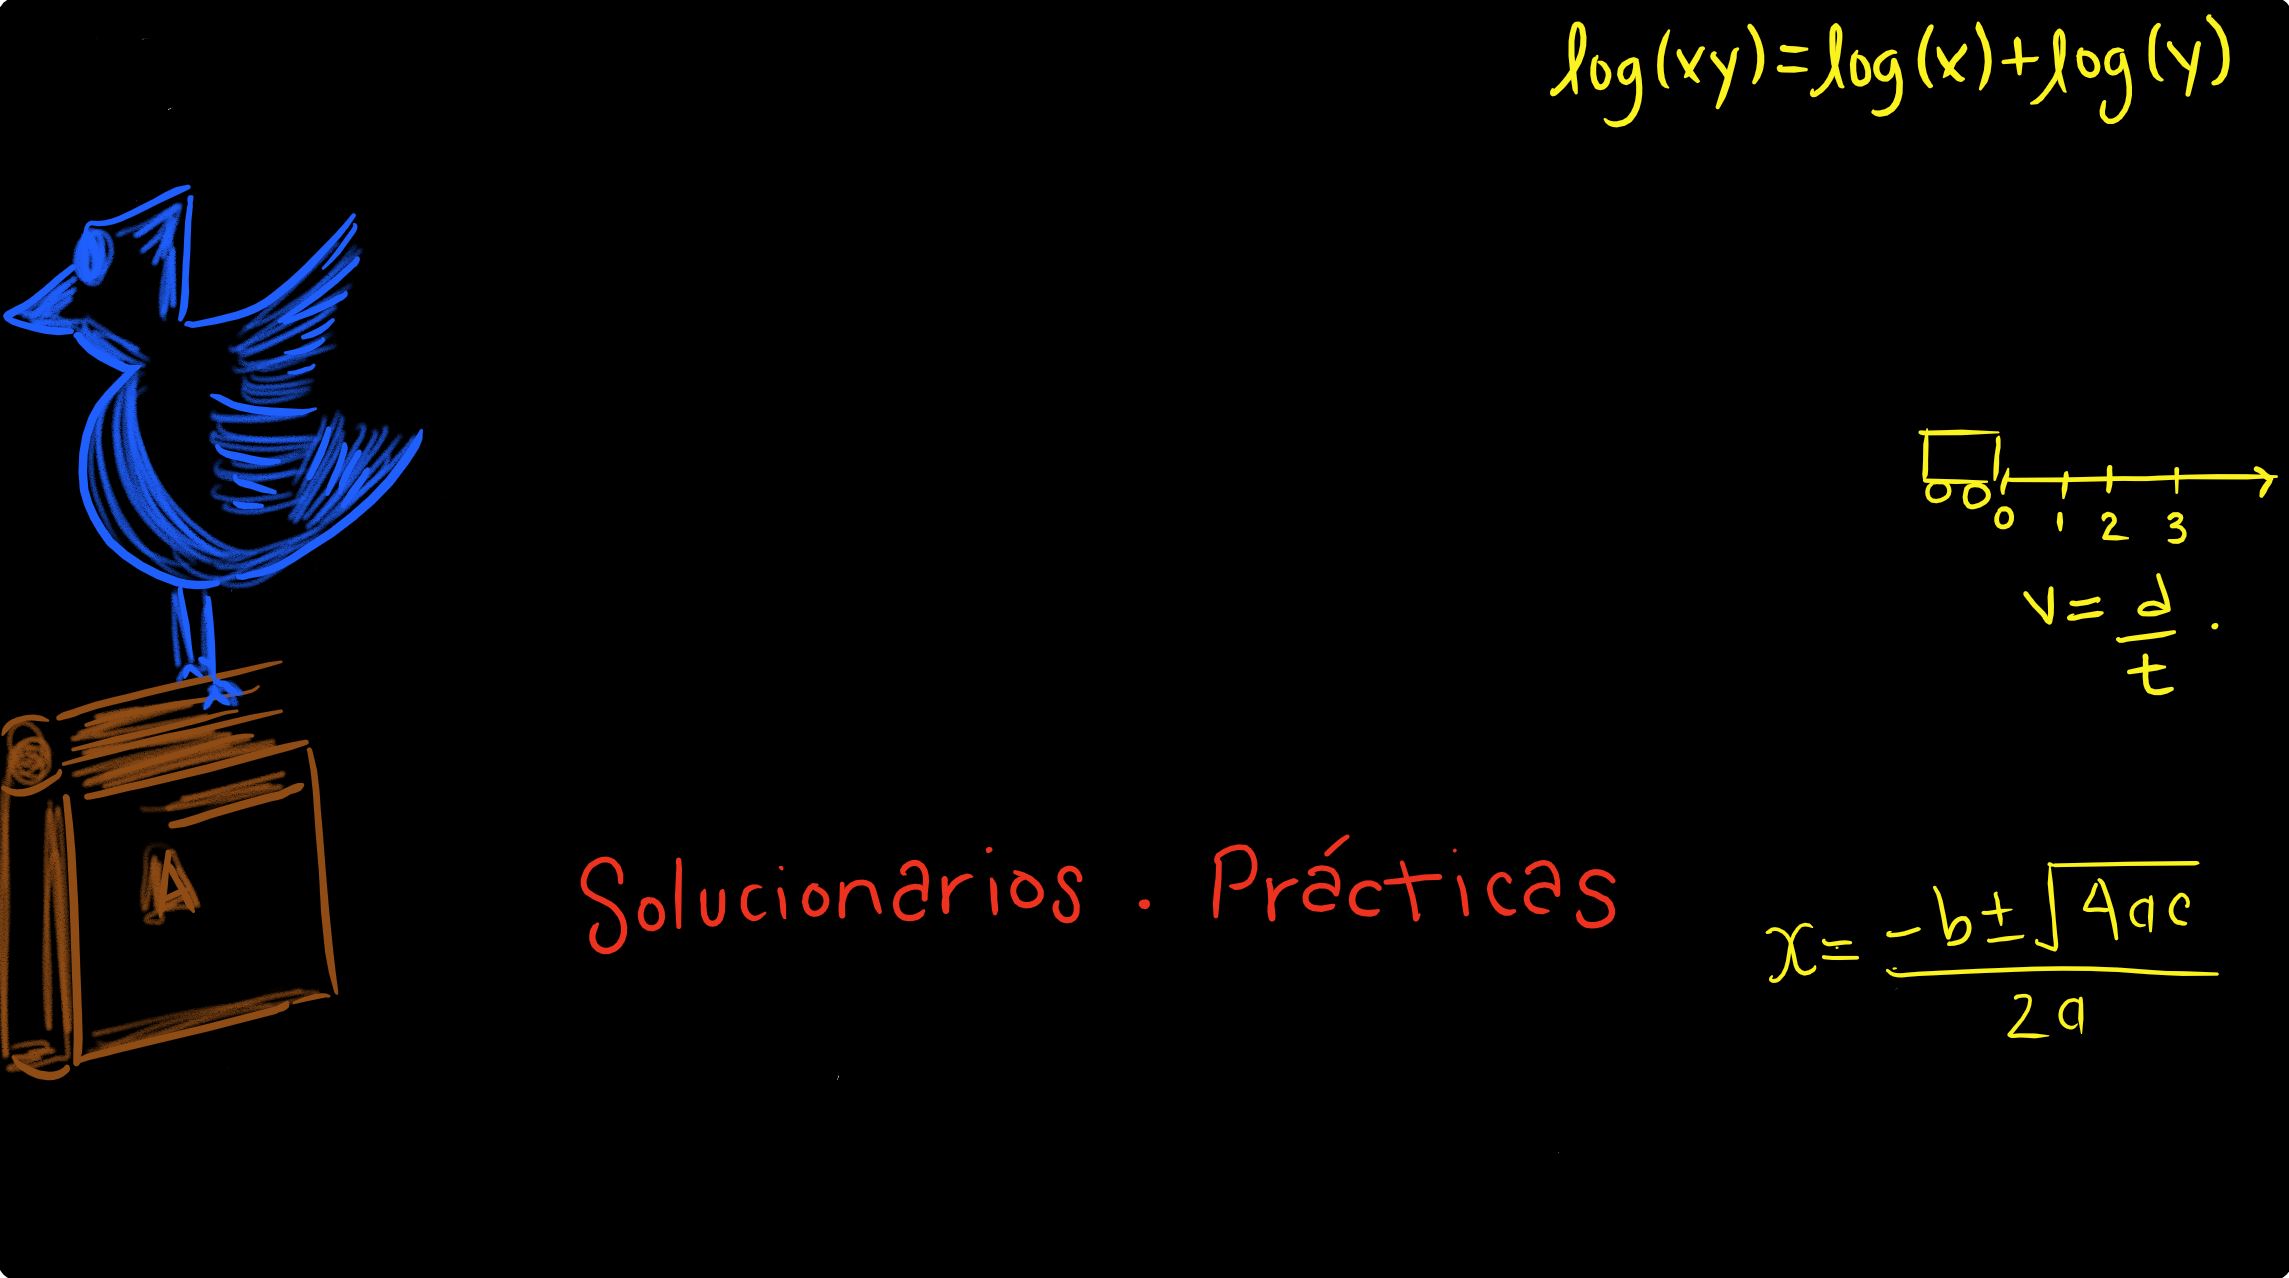 log(xy)=log(x)+log(y)
0 1 2 3
v= d/t .
A
Solucionarios . Prácticas
x= -b±√4ac / 2a